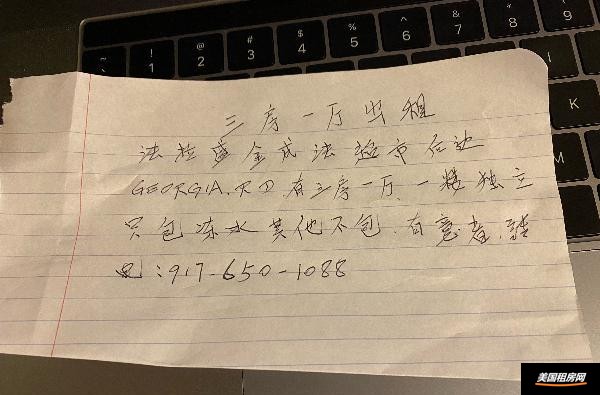 三房一厅出租
法拉盛金成法超市后边
GEORGIA.RD.有三房一厅.一楼独立
只包冻水其他不包.有意者.致
电:917-650-1088
~
! 1
@ 2
# 3
$ 4
% 5
^ 6
& 7
* 8
( 9
I
K
M
美国租房网